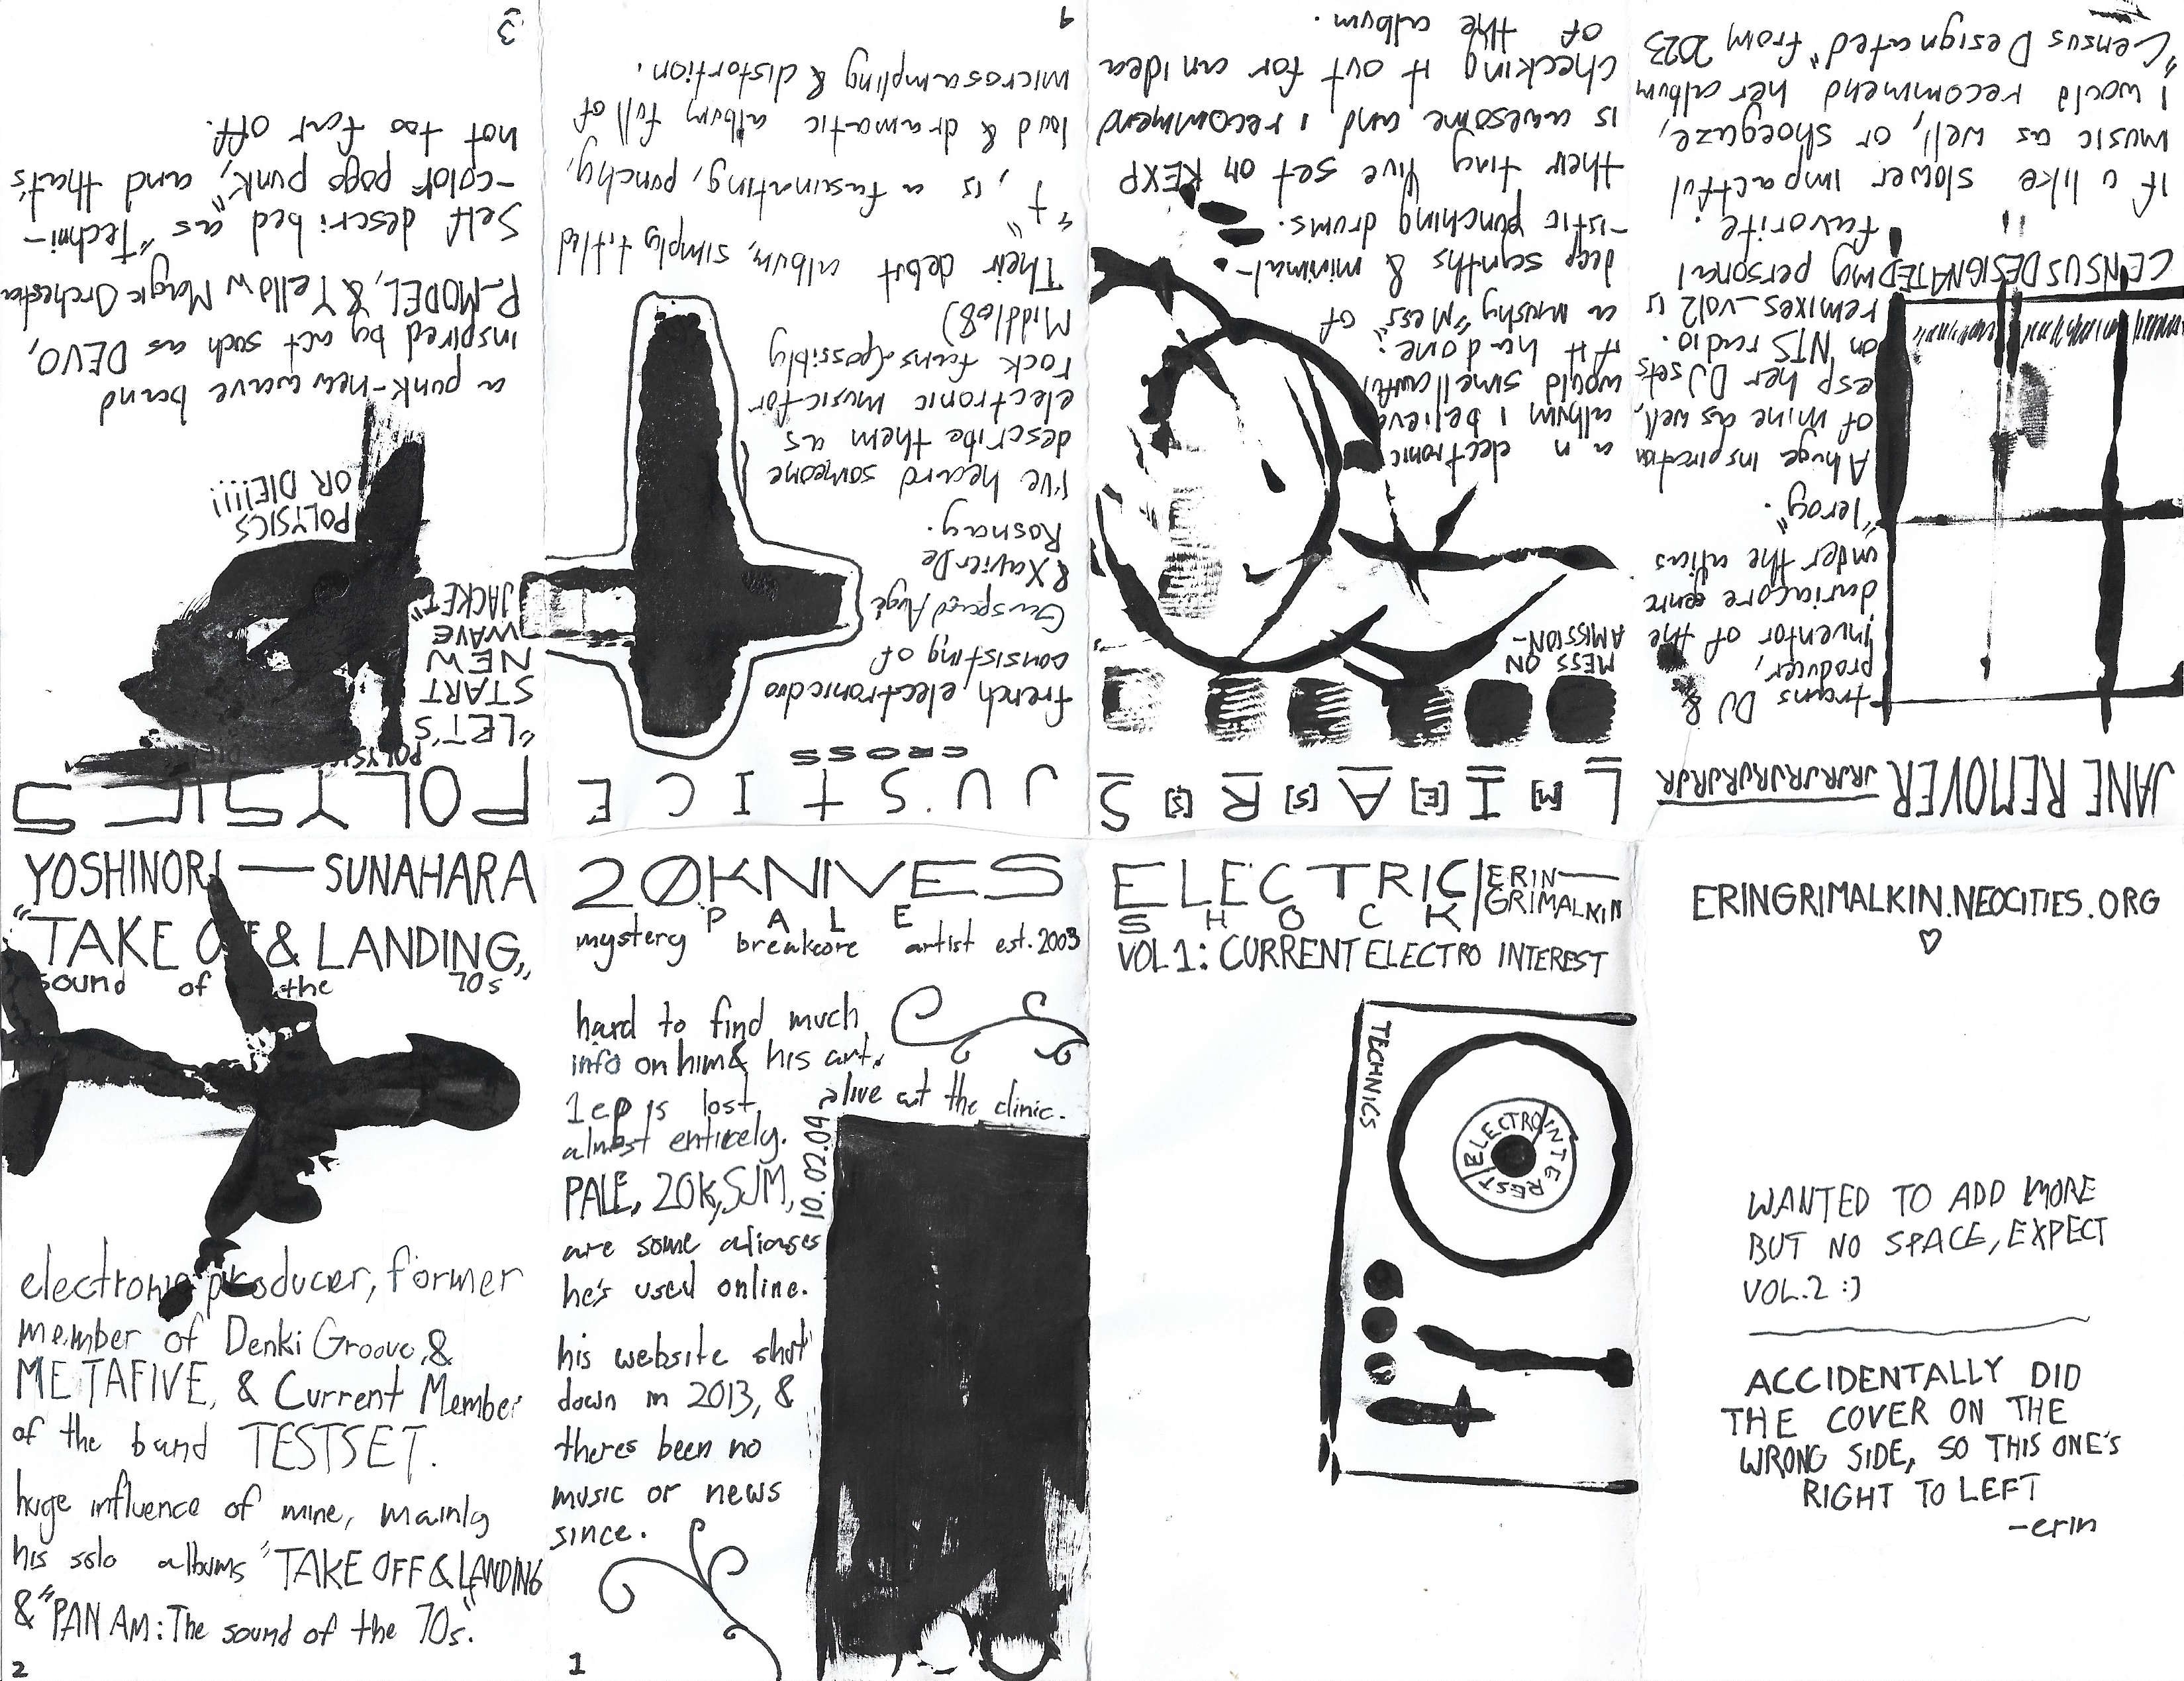 ELECTRIC
SHOCK
ERIN
GRIMALKIN
VOL 1: CURRENT ELECTRO INTEREST
TECHNICS
ELECTRO INTEREST
20KNIVES
PALE
mystery breakcore artist est. 2003
hard to find much
info on him & his art.
1 ep is lost
almost entirely.
PALE, 20K, SJM,
are some aliases
he's used online.
alive at the clinic.
10.02.04
his website shut
down in 2013, &
theres been no
music or news
since.
1
YOSHINORI — SUNAHARA
"TAKE OFF & LANDING"
sound of the 70s
electronic producer, former
member of Denki Groove, &
METAFIVE, & Current Member
of the band TESTSET.
huge influence of mine, mainly
his solo albums "TAKE OFF & LANDING
& "PAN AM: The sound of the 70s."
2
POLYSICS
"LET'S
START
NEW
WAVE
JACKET"
POLYSICS
OR DIE!!!!
a punk-new wave band
inspired by act such as DEVO,
P-MODEL, & Yellow Magic Orchestra
Self described as "Techni-
-color pogo punk", and that's
not too far off.
3
JUSTICE
CROSS
french electronic duo
consisting of
Gaspard Augé
& Xavier De
Rosnay.
I've heard someone
describe them as
electronic music for
rock fans (possibly
Middle8)
Their debut album, simply titled
"†", is a fascinating, punchy,
loud & dramatic album full of
microsampling & distortion.
4
L[M]I[E]A[S]R[S]S
MESS ON
A MISSION-
an electronic
album I believe
would smell awful
if it had one.
a mushy "Mess" of
deep synths & minimal-
-istic punching drums.
their tiny live set on KEXP
is awesome and i recommend
checking it out for an idea
of the album.
JANE REMOVER JRJRJRJRJRJRJR
trans DJ &
producer,
inventor of the
dariacore genre
under the alias
"leroy".
A huge inspiration
of mine as well,
esp her DJ sets
on NTS radio.
remixes_vol2 is
my personal
favorite.
CENSUS DESIGNATED
If u like slower impactful
music as well, or shoegaze,
I would recommend her album
"Census Designated" from 2023
ERINGRIMALKIN.NEOCITIES.ORG
♡
WANTED TO ADD MORE
BUT NO SPACE, EXPECT
VOL.2 :)
ACCIDENTALLY DID
THE COVER ON THE
WRONG SIDE, SO THIS ONE'S
RIGHT TO LEFT
-erin